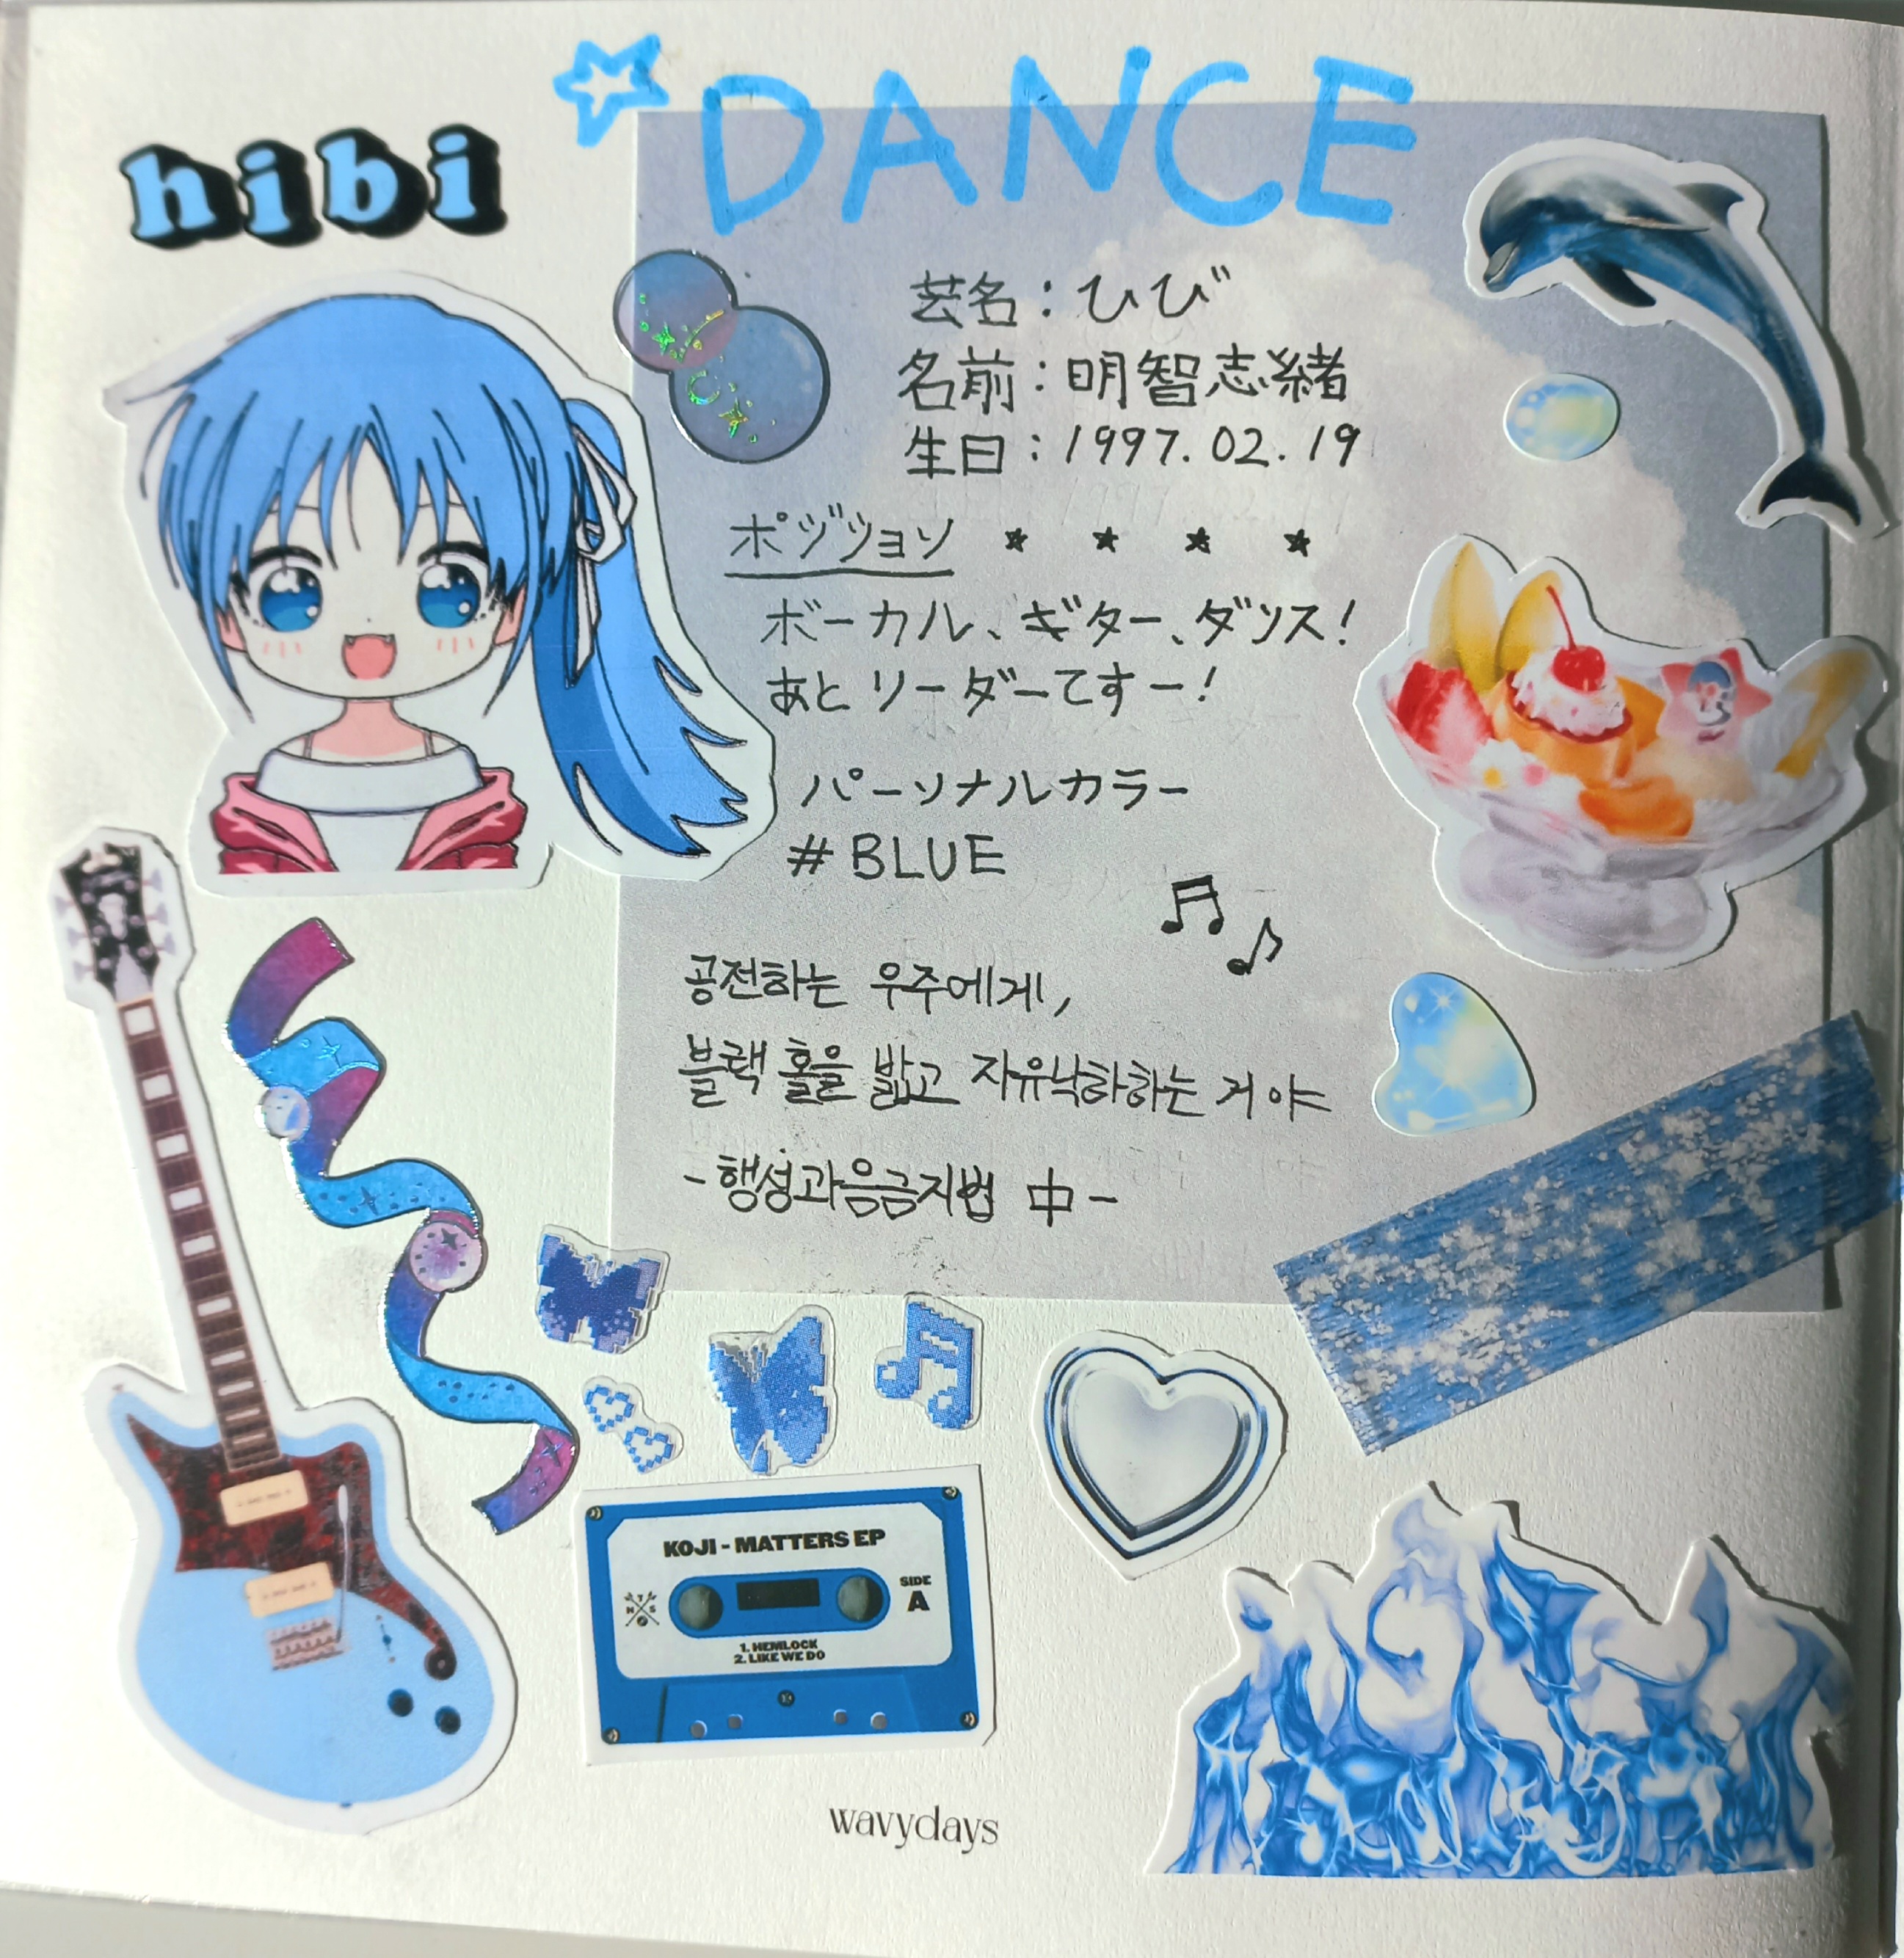 DANCE
hibi
芸名：ひび
名前：明智志緒
生日：1997.02.19
ポジション
ボーカル、ギター、ダンス！
あとリーダーてすー！
パーソナルカラー
#BLUE
공전하는 우주에게,
블랙홀을 밟고 자유낙하하는 거야
-행성과음금지법 中-
KOJI - MATTERS EP
SIDE
A
1. HEMLOCK
2. LIKE WE DO
wavydays